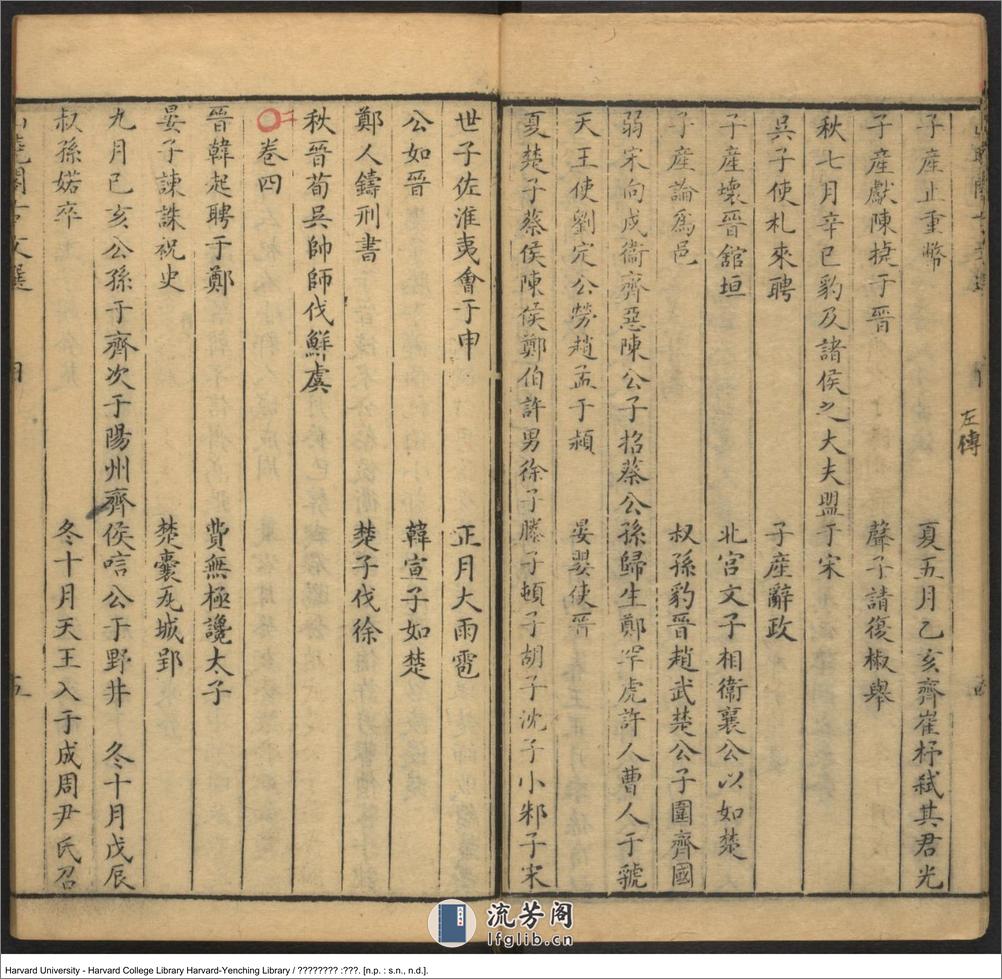 左傳
子產止重幣　夏五月乙亥齊崔杼弒其君光
子產獻陳捷于晉　聲子請復椒舉
秋七月辛巳豹及諸侯之大夫盟于宋
吳子使札來聘　子產辭政
子產壞晉館垣　北宮文子相衛襄公以如楚
子產論爲邑　叔孫豹晉趙武楚公子圍齊國
弱宋向戍衛齊惡陳公子招蔡公孫歸生鄭罕虎許人曹人于虢
天王使劉定公勞趙孟于潁　晏嬰使晉
夏楚子蔡侯陳侯鄭伯許男徐子滕子頓子胡子沈子小邾子宋
世子佐淮夷會于申　正月大雨雹
公如晉　韓宣子如楚
鄭人鑄刑書　楚子伐徐
秋晉荀吳帥師伐鮮虞
卷四
晉韓起聘于鄭　費無極讒太子
晏子諫誅祝史　楚囊瓦城郢
九月己亥公孫于齊次于陽州齊侯唁公于野井　冬十月戊辰
叔孫婼卒　冬十月天王入于成周尹氏召
五
流芳阁
lfglib.cn
Harvard University - Harvard College Library Harvard-Yenching Library / ???????? :???. [n.p. : s.n., n.d.].